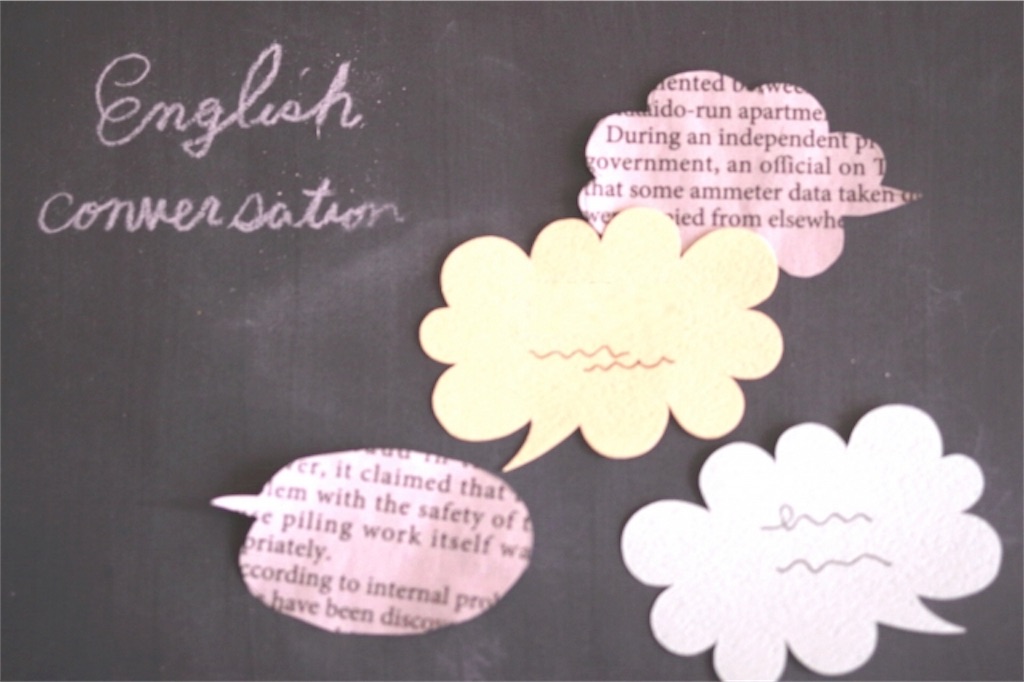 English
conversation
ented betwee
aido-run apartme
During an independent p
government, an official on T
that some ammeter data taken
ied from elsewhe
er, it claimed that
em with the safety of
piling work itself wa
priately.
ccording to internal pro
have been disco